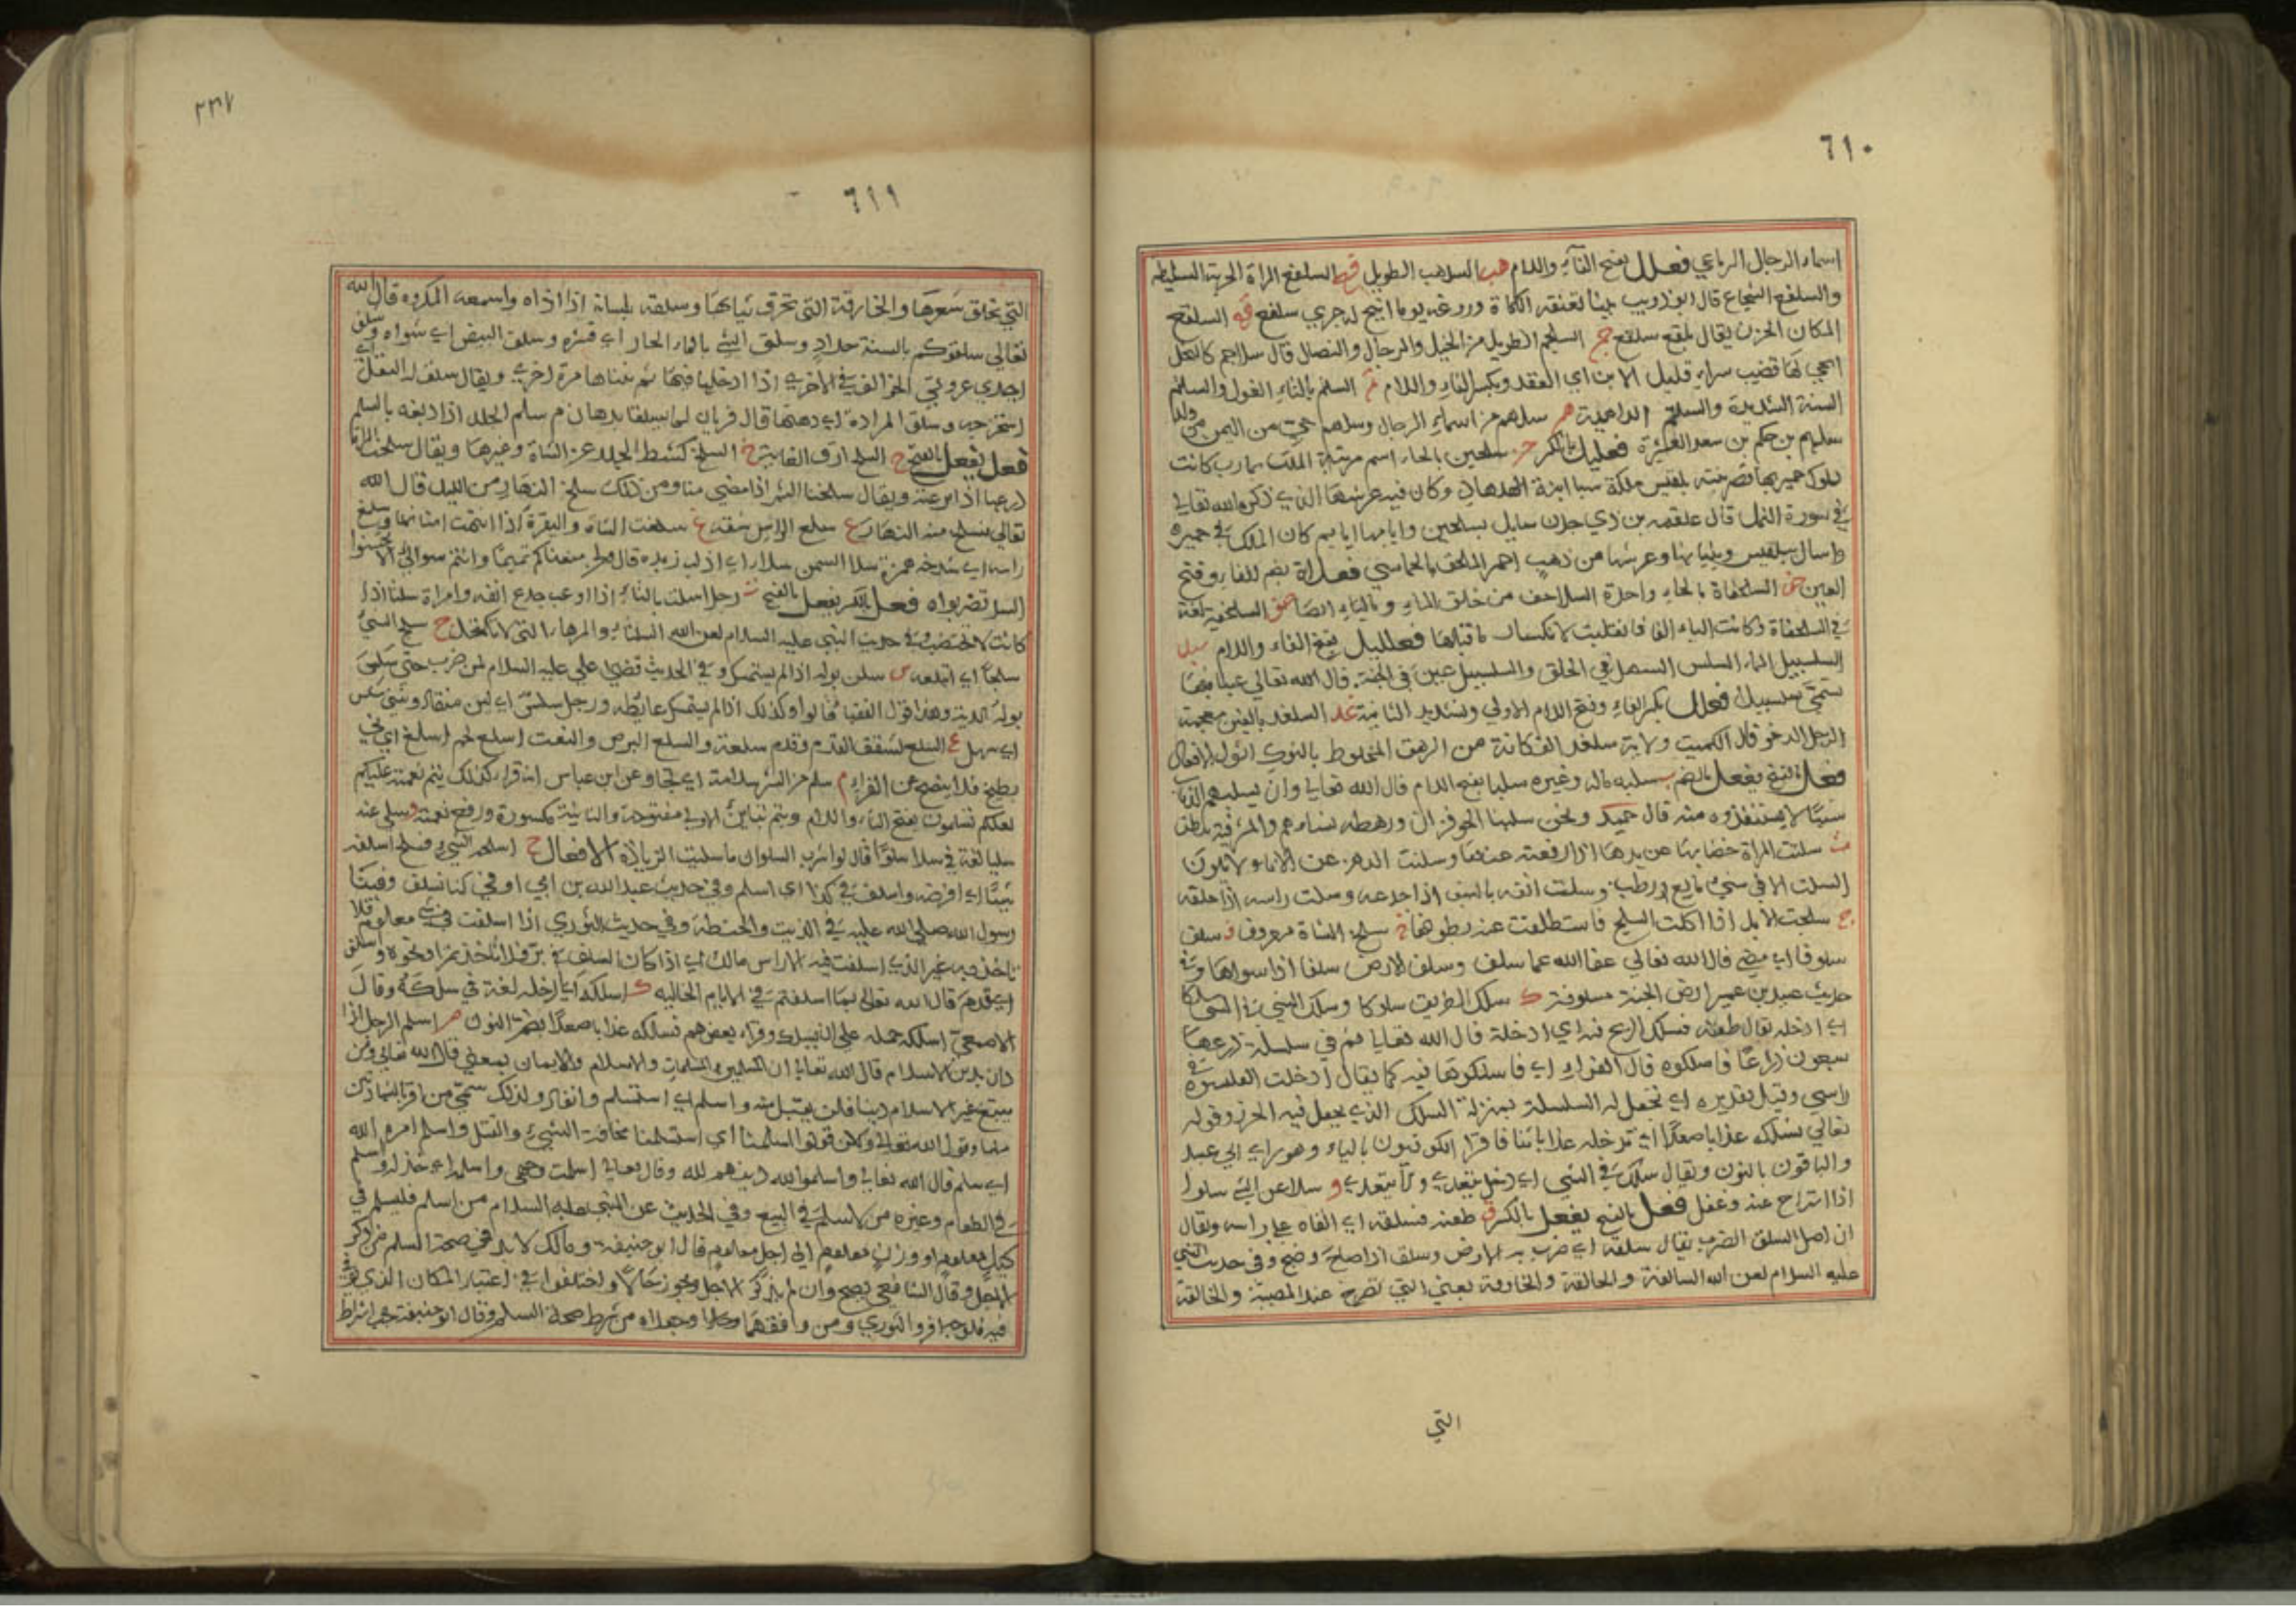 ٦١٠
اسماء الرجال الرباعي فعلل بفتح الفاء واللام هب السلهب الطويل فع السلفع المراة الجرية السليطه
والسلفع الشجاع قال ابو ذويب بينا تعنقه الكماة وروغه يوما اتيح له جري سلفع قع السلقع
المكان الحزن يقال بلقع سلقع جم السلجم الطويل من الخيل والرجال والنصال قال سلاجم كالنحل
انحي لها قضيب سراء قليل الابن اي العقد وبكسر الفاء واللام تم السلتم بالتاء الغول والسلتم
السنة الشديدة والسلتم الداهية هم سلهم من اسماء الرجال وسلهم حي من اليمن من ولد
سلهم بن حكم بن سعد العشيرة فعليل بالكسر ح سلحين بالحاء اسم مرتبة الملك بمارب كانت
لملوك حمير بها قصر بلقيس ملكة سبا ابنة الهدهاد وكان فيه عرشها الذي ذكره الله تعالى
في سورة النمل قال علقمه بن ذي جدن سايل بسلحين وايامها ايام كان الملك في حميره
واسال ببلقيس وبنيانها وعرشها من ذهب احمر الملحق بالخماسي فعلاة بضم الفاء وفتح
العين حف السلحفاة بالحاء واحدة السلاحف من خلق الماء وبالياء ايضا السلحفيه لغة
في السلحفاة وكانت الياء الفا فانقلبت لانكسار ما قبلها فعلليل بفتح الفاء واللام سبل
السلسبيل الماء السلس السهل في الحلق والسلسبيل عين في الجنة قال الله تعالى عينا فيها
تسمى سلسبيلا فعلل بكسر الفاء وفتح اللام الاولى وتشديد الثانية غد السلغد بالغين معجمة
الرجل الرخو قال الكميت ولاية سلغد الف كانه من الرهق المخلوط بالنوك اثول الافعال
فعل بالفتح يفعل بالضم ب سلبه ماله وغيره سلبا بفتح اللام قال الله تعالى وان يسلبهم الذباب
شيئا لا يستنقذوه منه قال ونحن سلبنا الحوفزان ورهطه نساءهم والمشرفية
ت سلتت المراة خضابها عن يدها اذا رفعته عنها وسلتت الدم عن الاناء ولا يكون
السلت الا في شيء مايع او رطب وسلت انفه بالسيف اذا جدعه وسلت راسه اذا حلقه
ج سلجت الابل اذا اكلت السلج فاستطلقت عنه بطونها خ سلخ الشاة معروف ف سلف
سلوفا اي مضى قال الله تعالى عفا الله عما سلف وسلف الارض سلفا اذا سواها وفي
حديث عبيد بن عمير ارض الجنة مسلوفة ك سلك الطريق سلوكا وسلك الشي في الشي سلكا
اي ادخله يقال طعنه فسلك الرمح فيه اي ادخله قال الله تعالى ثم في سلسلة ذرعها
سبعون ذراعا فاسلكوه قال الفراء اي فاسلكوها فيه كما يقال ادخلت القلنسوة في
راسي وقيل تقديره اي تجعل له السلسلة بمنزلة السلك الذي يجعل فيه الخرز وقوله
تعالى نسلكه عذابا صعدا اي ندخله عذابا شاقا قرا الكوفيون بالياء وهو راي ابي عبيد
والباقون بالنون ويقال سلك في الشي اي دخل يتعدى ولا يتعدى و سلا عن الشي سلوا
اذا استراح عنه وغفل فعل بالفتح يفعل بالكسر ق طعنه فسلقه اي القاه على راسه ويقال
ان اصل السلق الضرب يقال سلقه اي ضرب به الارض وسلق اذا صاح وضج وفي حديث النبي
عليه السلام لعن الله السالقة والحالقة والخارقة يعني التي تصرخ عند المصيبة والحالقة
التي
٦١١
٣٣٧
التي تحلق شعرها والخارقة التي تخرق ثيابها وسلقه بلسانه اذا اذاه واسمعه المكروه قال الله
تعالى سلقوكم بالسنة حداد وسلق الشي بالماء الحار اي قشره وسلق البيض اي شواه وسلق
احدى عروتي الجوالق في الاخرى اذا ادخلها فيها ثم ثناها مرة اخرى ويقال سلق البقل اي
وسلق المزادة اي دهنها قال فريان لما يسلقا بدهان م سلم الجلد اذا دبغه بالسلم
فعل يفعل بالفتح ح السلخ كشط الجلد عن الشاة وغيرها ويقال سلخت المراة
درعها اذا نزعته ويقال سلخنا الشهر اذا مضى منا ومن ذلك سلخ النهار من الليل قال الله
تعالى نسلخ منه النهار ع سلع الراس شقه غ سلغت الشاة والبقرة اذا انتهت اسنانها وسلغ
راسه اي شدخه همزة سلا السمن سلاء اي اذاب زبده قال
فعل بالكسر يفعل بالفتح ت رجل اسلت بالتاء اذا اوعب جدع انفه وامراة سلتا اذا
كانت لا تختضب وفي حديث النبي عليه السلام لعن الله السلتاء والمرهاء التي لا تكتحل ج سلج الشي
سلجا اي ابتلعه س سلس بوله اذا لم يستمسك وفي الحديث قضى علي عليه السلام لمن ضرب حتى سلس
بوله بالدية وهذا قول الفقها قالوا وكذلك اذا لم يستمسك غايطه ورجل سلس اي لين منقاد وشي سلس
اي سهل ع السلع تشقق القدم وقدم سلعة والسلع البرص والنعت اسلع لحم اسلغ اي ني
يطبخ فلا ينضج عن الفراء م سلم من الشر سلامة اي نجا وعن ابن عباس انه قرا كذلك يتم نعمته عليكم
لعلكم تسلمون بفتح التاء واللام ويتم بتاءين الاولى مفتوحة والثانية مكسورة ورفع نعمته و سلي عنه
سليا لغة في سلا سلوا قال لو اشرب السلوان ما سليت الزيادة الافعال ح
شيئا اي اقرضه واسلف في كذا اي اسلم وفي حديث عبد الله بن ابي اوفى كنا نسلف وفينا
رسول الله صلى الله عليه في الزيت والحنطة وفي حديث الثوري اذا اسلفت في شي معلوم فلا
تاخذ فيه غير الذي اسلفت فيه الا راس مالك اي اذا كان السلف في بر فلا ياخذ تمرا ونحوه واسلف
اي قدم قال الله تعالى بما اسلفتم في الايام الخاليه ك اسلكه اي ادخله لغة في سلكه وقال
الاصمعي اسلكه حمله على ان يسلك وقراء بعضهم نسلكه عذابا صعدا بضم النون م اسلم الرجل اذا
دان بدين الاسلام قال الله تعالى ان المسلمين والمسلمات والاسلام والايمان بمعنى قال الله تعالى ومن
يبتغ غير الاسلام دينا فلن يقبل منه واسلم اي استسلم وانقاد ولذلك سمي من اقر بالشهادتين
مسلما وقول الله تعالى ولكن قولوا اسلمنا اي استسلمنا مخافة السبي والقتل واسلم امره الى الله
اي سلم قال الله تعالى واسلموا الله دينهم لله وقال تعالى اسلمت وجهي واسلمه اي خذله واسلم
في الطعام وغيره من السلم في البيع وفي الحديث عن النبي عليه السلام من اسلم فليسلم في
كيل معلوم او وزن معلوم الى اجل معلوم قال ابو حنيفة ومالك لا بد في صحة السلم من ذكر
الاجل وقال الشافعي يصح وان لم يذكر الاجل ويجوز حالا واختلفوا في اعتبار المكان الذي
فيه والثوري ومن وافقهما من شرط صحة السلم وقال ابو حنيفة